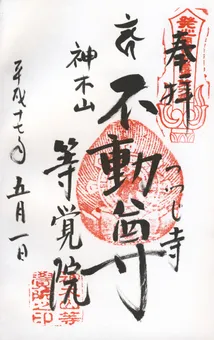 奉拝
つつじ寺
不動尊
神木山
等覚院
平成十七年
五月一日